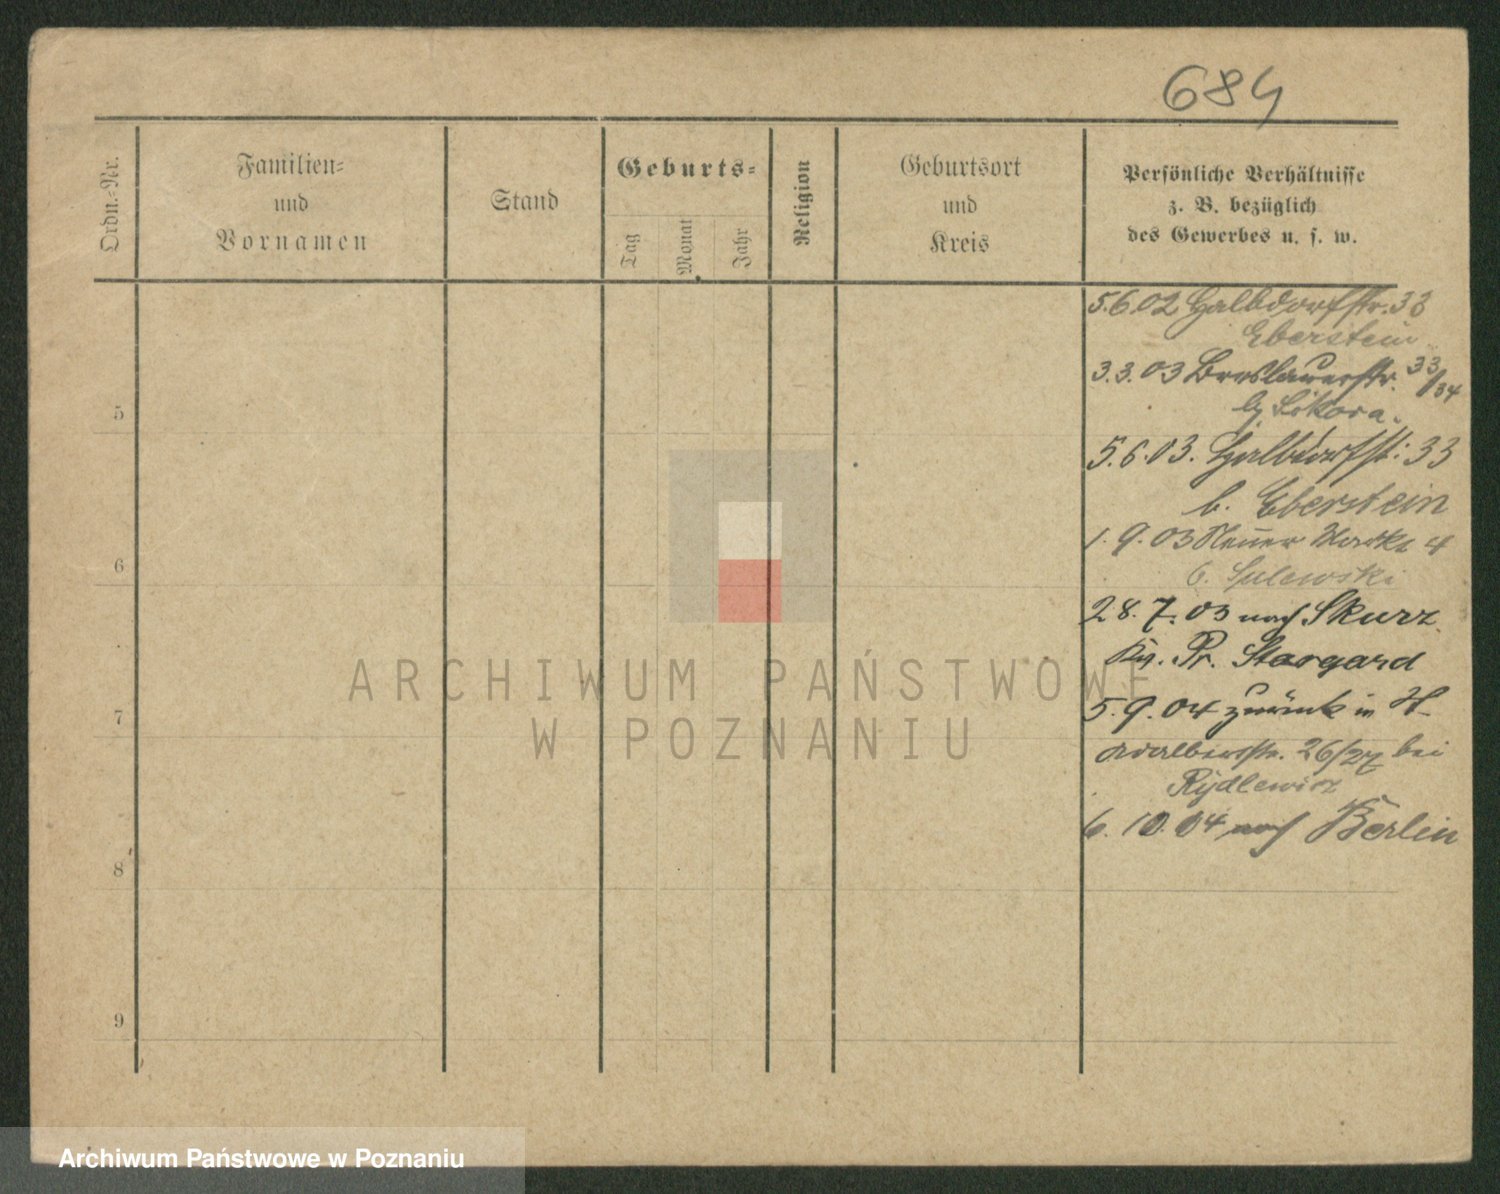 684
Ordn.-Nr.
Familien-
und
Vornamen
Stand
Geburts-
Tag
Monat
Jahr
Religion
Geburtsort
und
Kreis
Persönliche Verhältnisse
z. B. bezüglich
des Gewerbes u. s. w.
5.6.02 Halbdorfstr. 33
Eberstein
3.3.03 Breslauerstr. 33/34
b. Sikora.
5
5.6.03. Halbdorfst: 33
b. Eberstein
1.9.03 Neuer Markt 4
b. Sulewski
6
28.7.03 nach Skurz
Kr. Pr. Stargard
5.9.04 zurück in
7
Adalbertstr. 26/27 bei
Rydlewicz
6.10.04 nach Berlin
8
9
ARCHIWUM PAŃSTWOWE
W POZNANIU
Archiwum Państwowe w Poznaniu